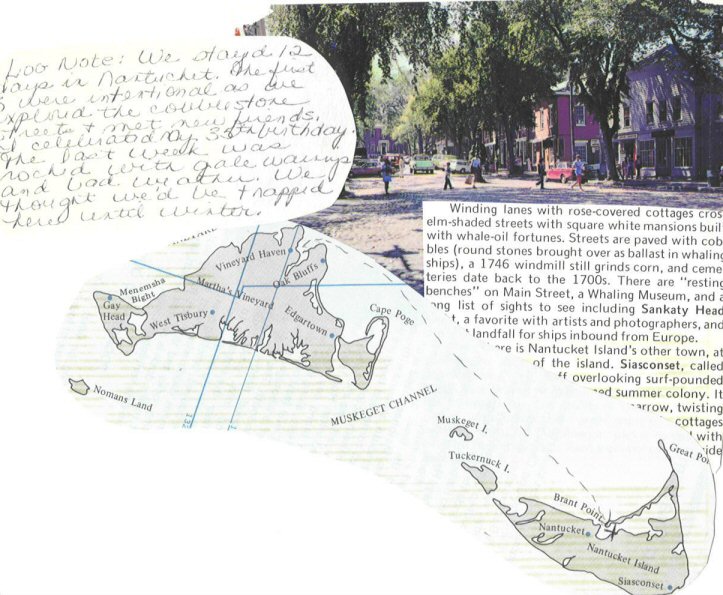 Log Note: We stayd 12
days in Nantucket. The first
were intentional as we
explord the cobblestone
streets + met new friends.
I celebrated my birthday.
The last week was
rockd with gale warnings
and bad weather. We
thought we'd be trapped
here until winter.
Winding lanes with rose-covered cottages cros
elm-shaded streets with square white mansions buil
with whale-oil fortunes. Streets are paved with cob
bles (round stones brought over as ballast in whaling
ships), a 1746 windmill still grinds corn, and ceme
teries date back to the 1700s. There are "resting
benches" on Main Street, a Whaling Museum, and a
long list of sights to see including Sankaty Head
t, a favorite with artists and photographers, and
t landfall for ships inbound from Europe.
ere is Nantucket Island's other town, at
of the island. Siasconset, called
ff overlooking surf-pounded
ned summer colony. It
arrow, twisting
cottages
with
ide
Vineyard Haven
Oak Bluffs
Menemsha
Bight
Martha's Vineyard
Gay
Head
West Tisbury
Edgartown
Cape Poge
Nomans Land
132
MUSKEGET CHANNEL
Muskeget I.
Tuckernuck I.
Great Po
Brant Point
Nantucket
Nantucket Island
Siasconset